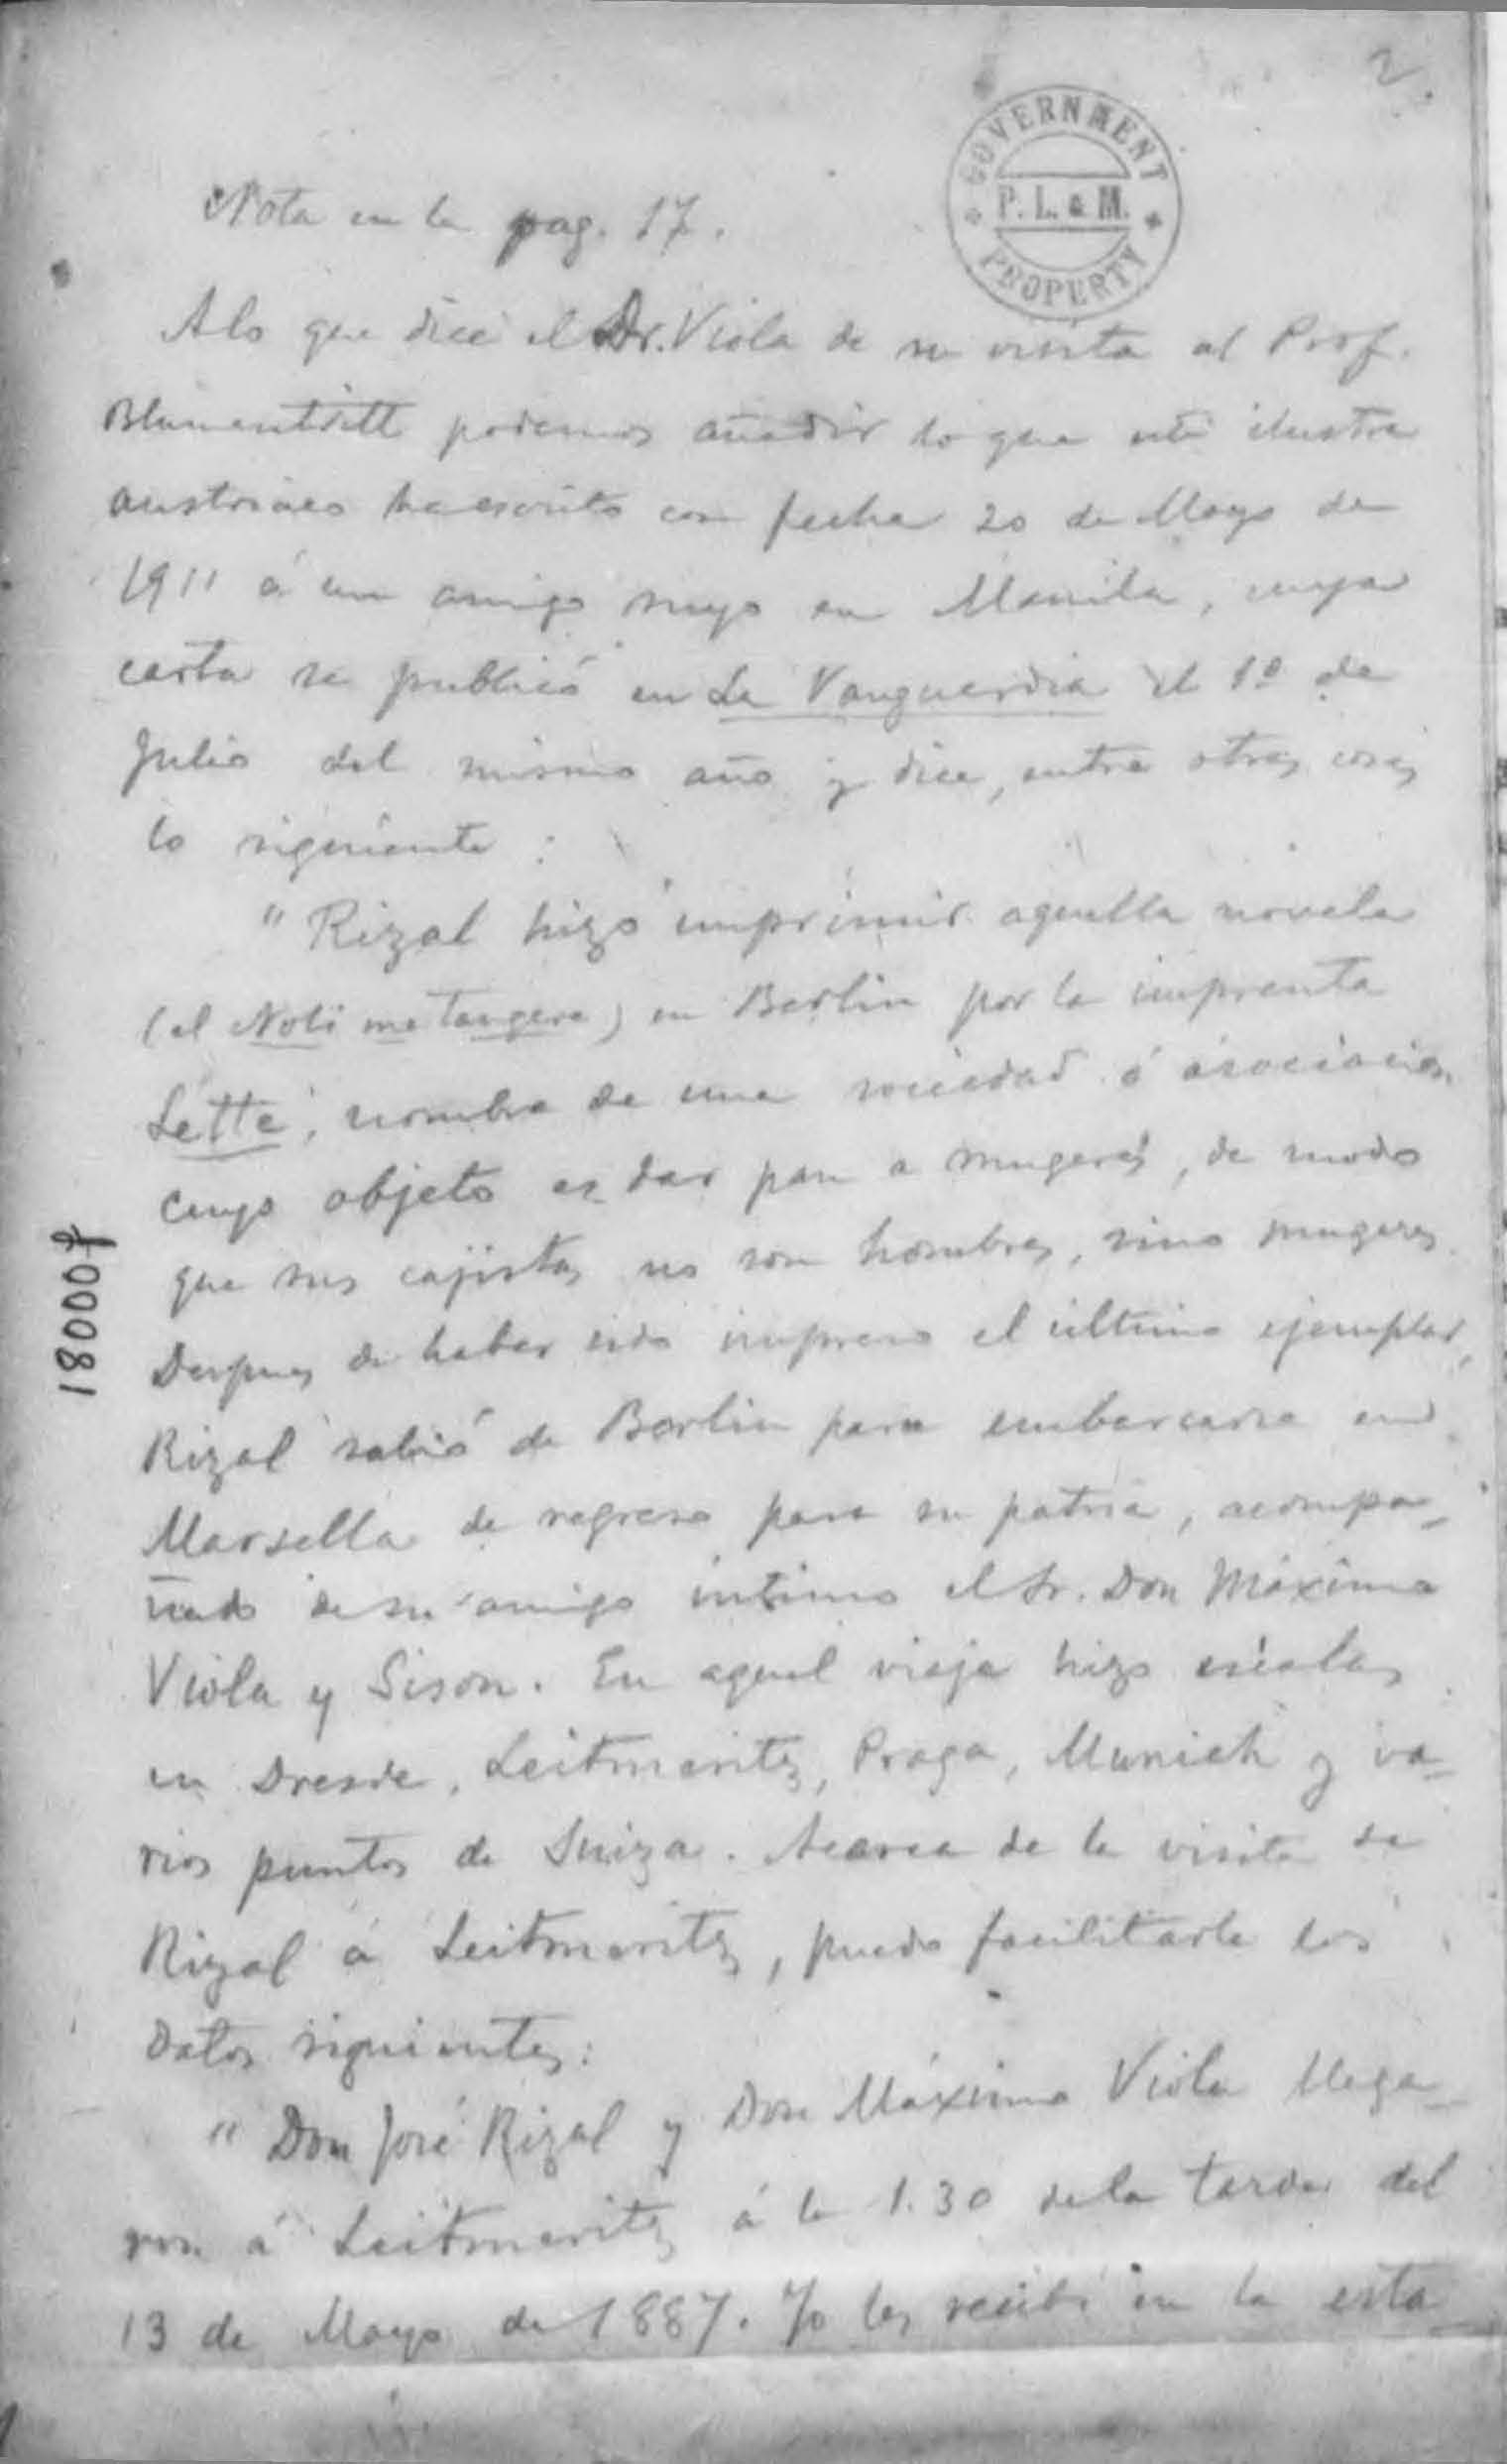 2.
GOVERNMENT
P. L. & M.
PROPERTY
Nota en la pag. 17.
A lo que dice el Dr. Viola de su visita al Prof.
Blumentritt podemos añadir lo que este ilustre
austriaco ha escrito con fecha 20 de Mayo de
1911 á un amigo suyo en Manila, cuya
carta se publicó en La Vanguardia el 1º de
Julio del mismo año y dice, entre otras cosas
lo siguiente :
" Rizal hizo imprimir aquella novela
(el Noli me tangere) en Berlin por la imprenta
Lette, nombre de una sociedad ó asociacion
cuyo objeto es dar pan a mugeres, de modo
que sus cajistas no son hombres, sino mugeres.
Despues de haber sido impreso el último ejemplar,
Rizal salió de Berlin para embarcarse en
Marsella de regreso para su patria, acompa-
ñado de su amigo íntimo el Sr. Don Máximo
Viola y Sison. En aquel viaje hizo escalas
en Dresde, Leitmeritz, Praga, Munich y va-
rios puntos de Suiza. Acerca de la visita de
Rizal á Leitmeritz, puedo facilitarle los
datos siguientes:
" Don José Rizal y Don Máximo Viola llega-
ron á Leitmeritz á la 1.30 de la tarde del
13 de Mayo de 1887. Yo les recibí en la esta-